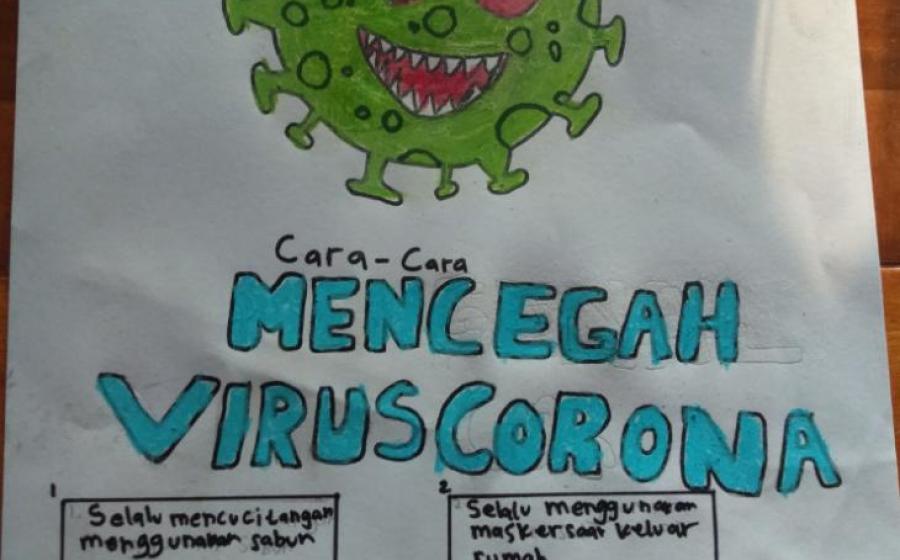 Cara-Cara
MENCEGAH
VIRUS CORONA
1
Selalu mencuci tangan
menggunakan sabun
2
Selalu menggunakan
masker saat keluar
rumah